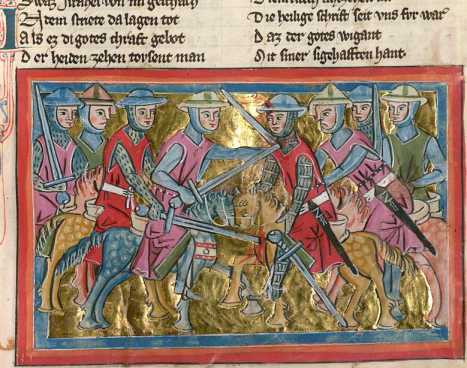 E dem striete da lagen tot
A ls ez di gotes chraft gebot
D er heiden zehen tovsent man
D ie heilige schrift seit vns fvr war
D az der gotes wigant
M it siner sigehafften hant